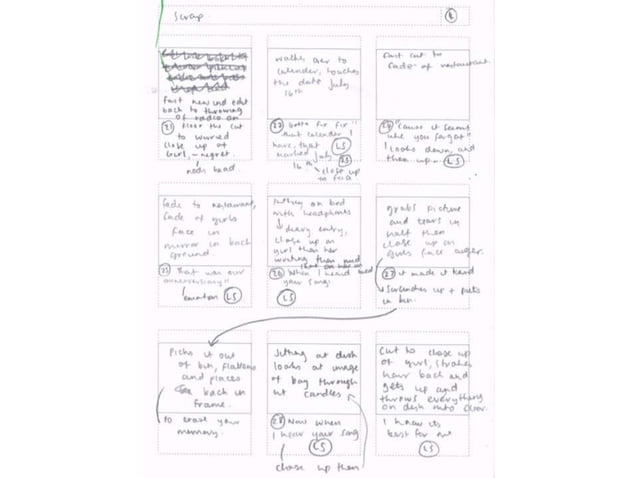 Scrap
4
fast rewind edit
back to throwing
of radio on
21 floor the cut
to worried
close up of
girl - regret.
nods head.
walks over to
calender, touches
the date july
16th
22
that calender I
have, that LS
marked july 23
16th
close up
to face
fast cut to
fade of restaurant
24 "cause it seems
like you forgot"
looks down, and
then up - LS
fade to restaurant,
fade of girls
face in
mirror in back
ground.
25 That was our
anniversary"
emotion LS
sitting on bed
with headphones
diary entry,
close up on
girl then her
writing then mid
26 When I heard
your song.
LS
grabs picture
and tears in
half then
close up on
girls face anger.
27 it made it hard
scrunches up + puts
in bin.
Picks it out
of bin, flattens
and places
back in
frame.
to erase your
memory.
Sitting at desk
looks at image
of boy through
lit candles
28 Now when
I hear your song
LS
close up then
Cut to close up
of girl, strokes
hair back and
gets up and
throws everything
on desk into floor.
I knew its
best for me
LS